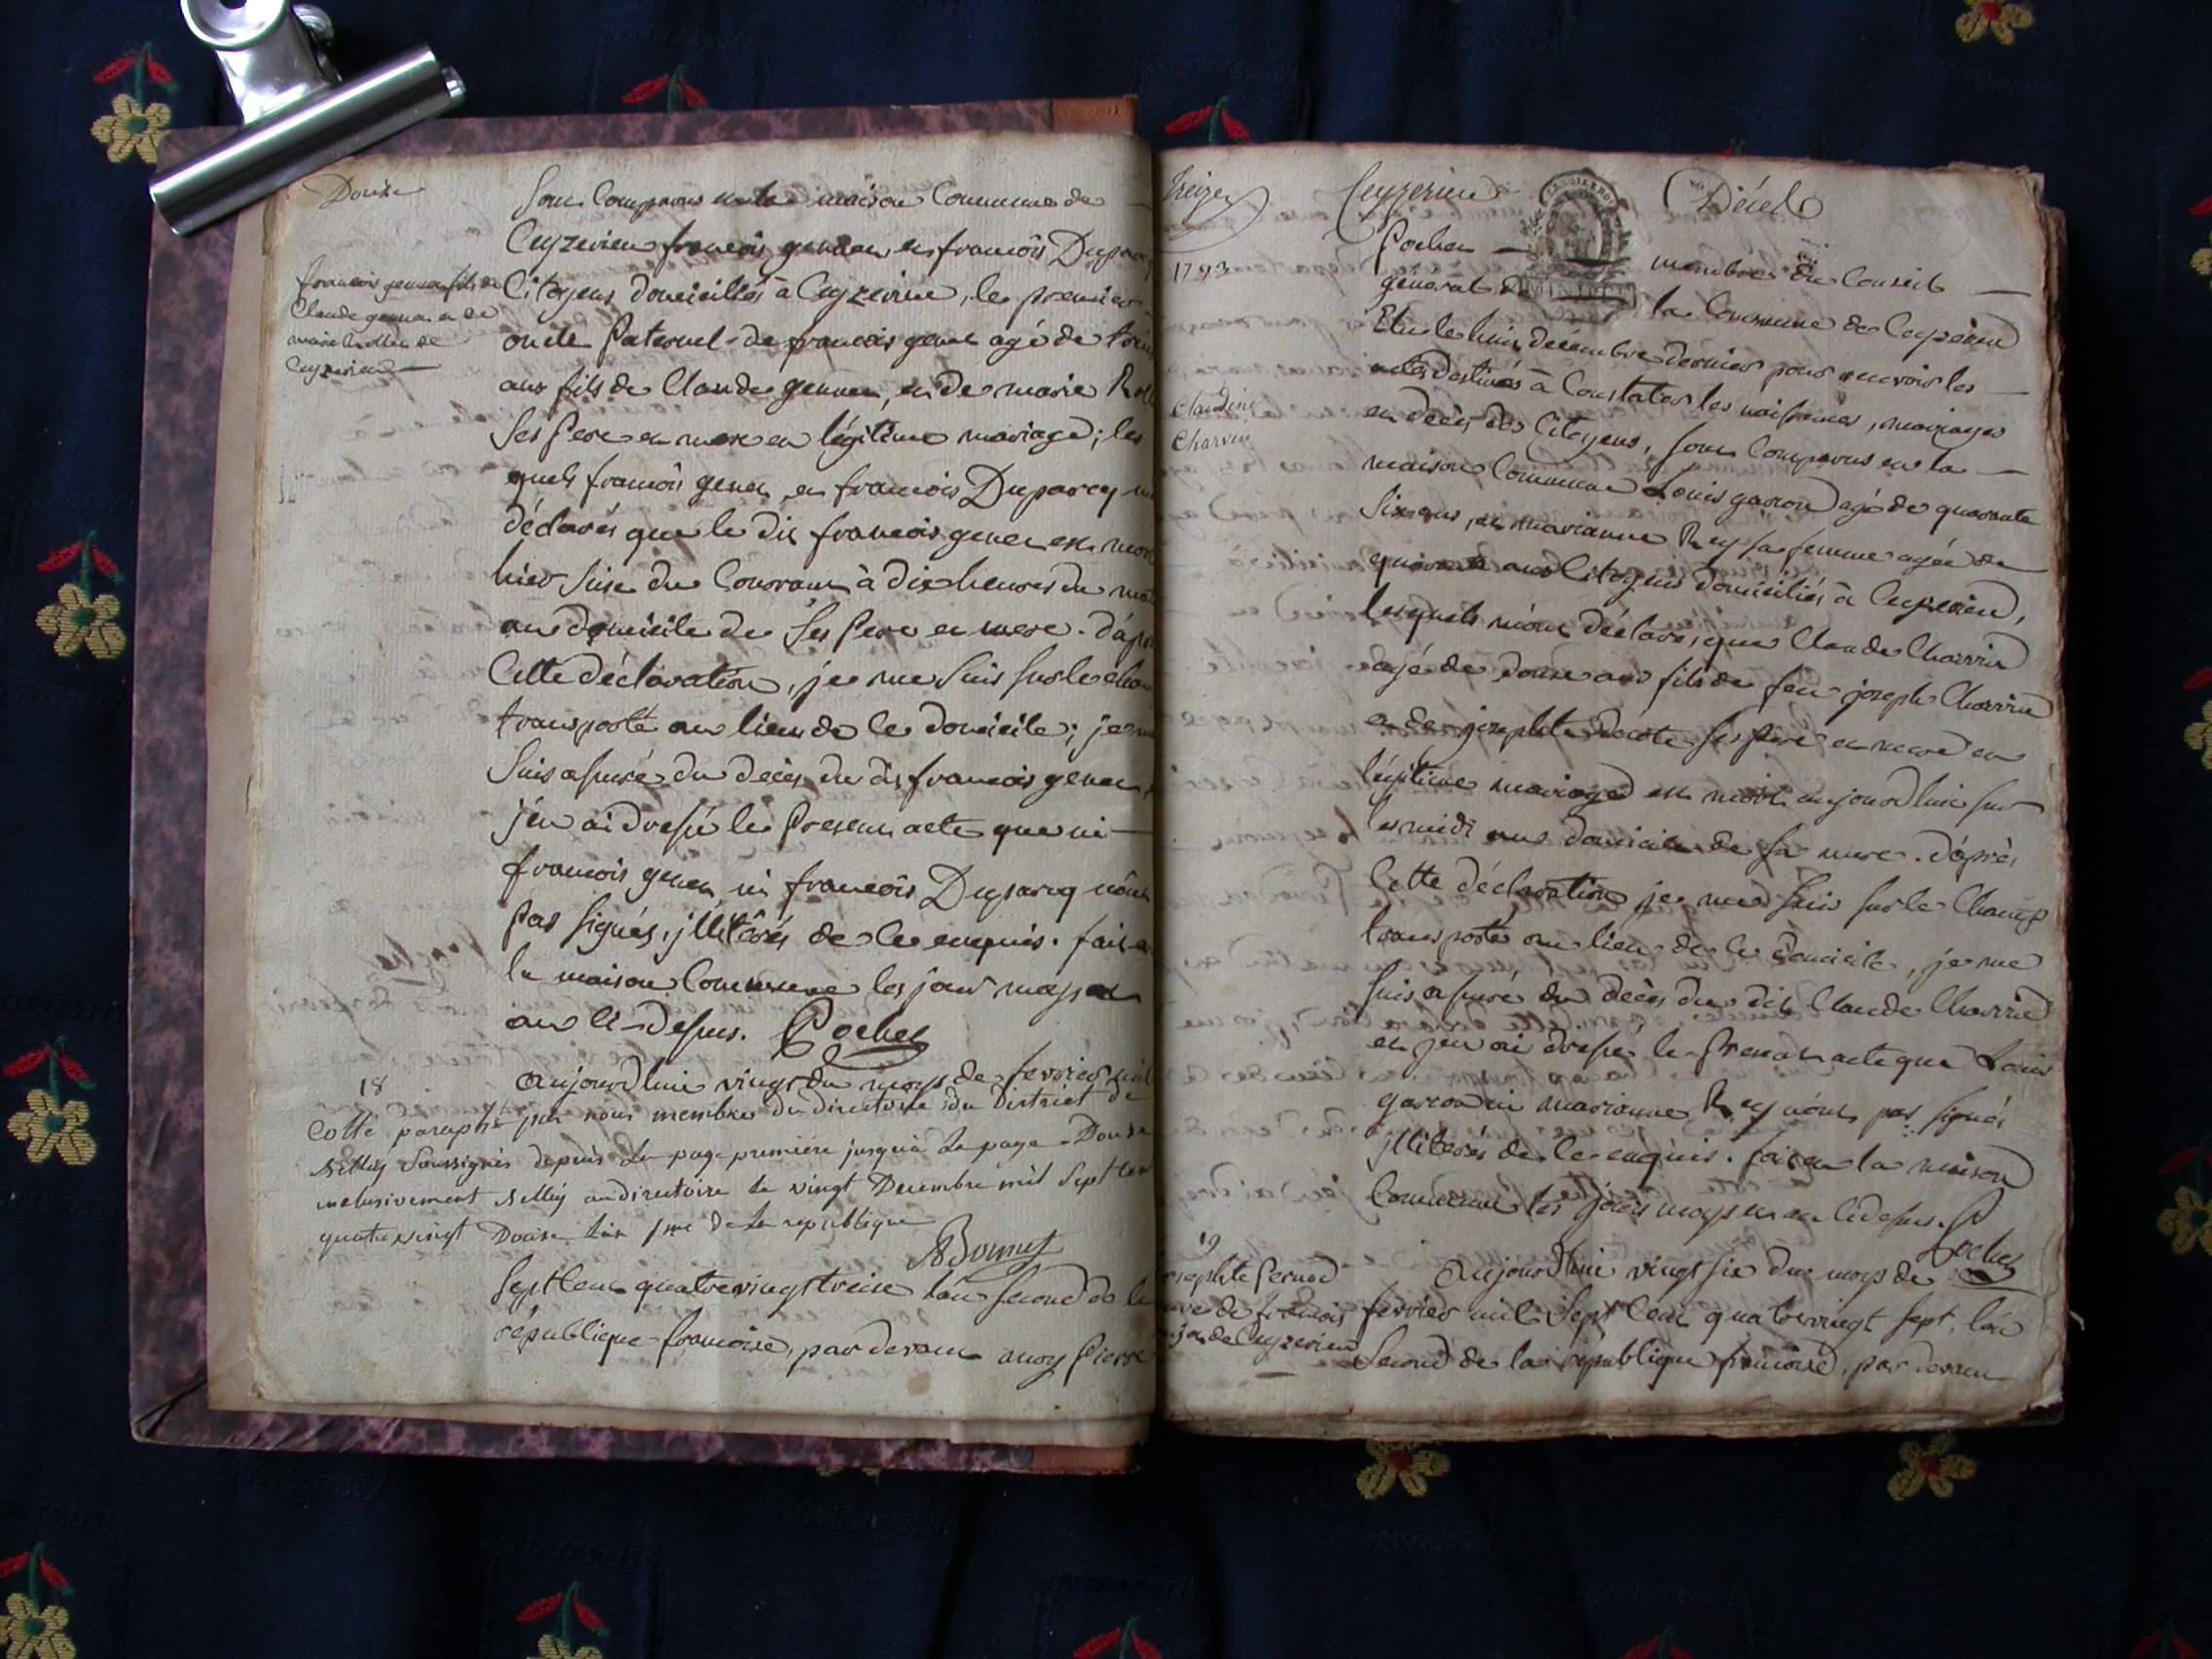 Douze
Sont Comparus en la maison Commune de
Ceyzerieu françois genen et françois Duparcq
Citoyens domiciliés à Ceyzerieu, le premier
oncle Paternel de françois genen agé de
ans fils de Claude genen, et de marie
Ses Pere et mere en légitime mariage; les
quels françois genen et françois Duparcq
déclarés que le dit françois genen est mort
hier Seise du Courant à dix heures du
au domicile de Ses Pere et mere. d'après
Cette déclaration, je me Suis sur le champ
transporté au lieu de Ce domicile; je me
Suis assuré du décès du dit françois genen,
j'en ai dressé le Present acte que ni
françois genen ni françois Duparcq n'ont
Pas signés, illiterés de Ce enquis. fait en
la maison Commune les jour moys et
an Ci-dessus. Pochet
françois genen fils de
Claude genen et de
marie de
Ceyzerieu
18
aujourd'hui vingt du moys de fevrier mil
Cotté paraphé par nous membre du directoire du District de
Belley Soussignés depuis la page premiere jusqu'à la page Douze
inclusivement Belley au directoire le vingt Decembre mil Sept Cent
quatre vingt Douze L'an 1er De la republique
Bonnet
Sept Cent quatrevingt treise l'an second de la
république françoise, par devant moy Pierre
Treize
Ceyzerieu
Décès
1793
Pochet membre du Conseil
général de la Commune de Ceyzerieu
Elu le huit décembre dernier pour recevoir les
actes destinés à Constater les naissances, mariages
et décès des Citoyens, sont Comparus en la
maison Commune Louis gavion agé de quarante
Six ans, et marianne Rey sa femme agée de
quarante ans Citoyens domiciliés à Ceyzerieu,
lesquels m'ont déclaré, que Claude Charvin
agé de douze ans fils de feu joseph Charvin
et de josephte decote ses pere et mere en
légitime mariage est mort aujourd'hui sur
les midi au domicile de sa mere. d'après
Cette déclaration je me suis sur le Champ
transporté au lieu de Ce domicile, je me
suis assuré du décès du dit Claude Charvin
et j'en ai dressé le Present acte que Louis
gavion ni marianne Rey n'ont pas signés
illiterés de Ce enquis. fait en la maison
Commune les jour moys et an Cidessus.
Pochet
Claudine
Charvin
19
josephte Pernod
de françois
de Ceyzerieu
aujourd'hui vingt six du moys de
fevrier mil Sept Cent quatrevingt sept, l'an
Second de la republique françoise, par devant